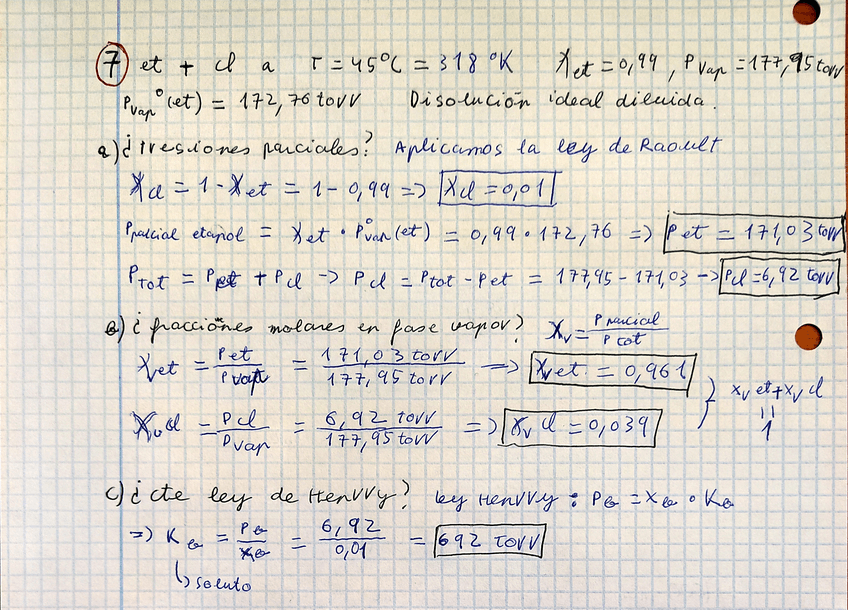 7 et + cl a T = 45ºC = 318 ºK Xet = 0,99, Pvap = 177,95 torr
Pvapº(et) = 172,76 torr Disolución ideal diluida.
a) ¿Presiones parciales? Aplicamos la ley de Raoult
Xcl = 1 - Xet = 1 - 0,99 => Xcl = 0,01
Pparcial etanol = Xet · Pºvap(et) = 0,99 · 172,76 => Pet = 171,03 torr
PTot = Pet + Pcl -> Pcl = Ptot - Pet = 177,95 - 171,03 -> Pcl = 6,92 torr
b) ¿fracciones molares en fase vapor? Xv = Pparcial / Ptot
Xvet = Pet / Pvap = 171,03 torr / 177,95 torr => Xvet = 0,961
Xvcl = Pcl / Pvap = 6,92 torr / 177,95 torr => Xvcl = 0,039 } xvet + xvcl = 1
c) ¿cte ley de Henrry? ley Henrry: PB = XB · KB
=> KB = PB / XB = 6,92 / 0,01 = 692 torr
↳ soluto